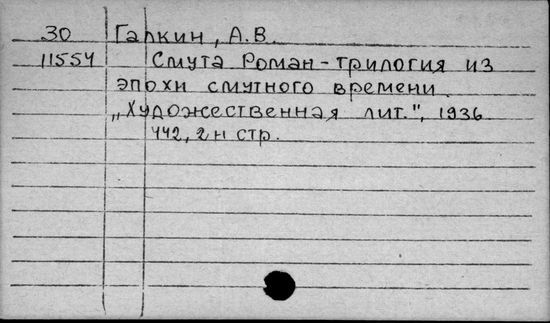 30 Галкин, А.В.
11554 Смута Роман-трилогия из
эпохи смутного времени.
„Художественная лит.", 1936
442, 2н стр.